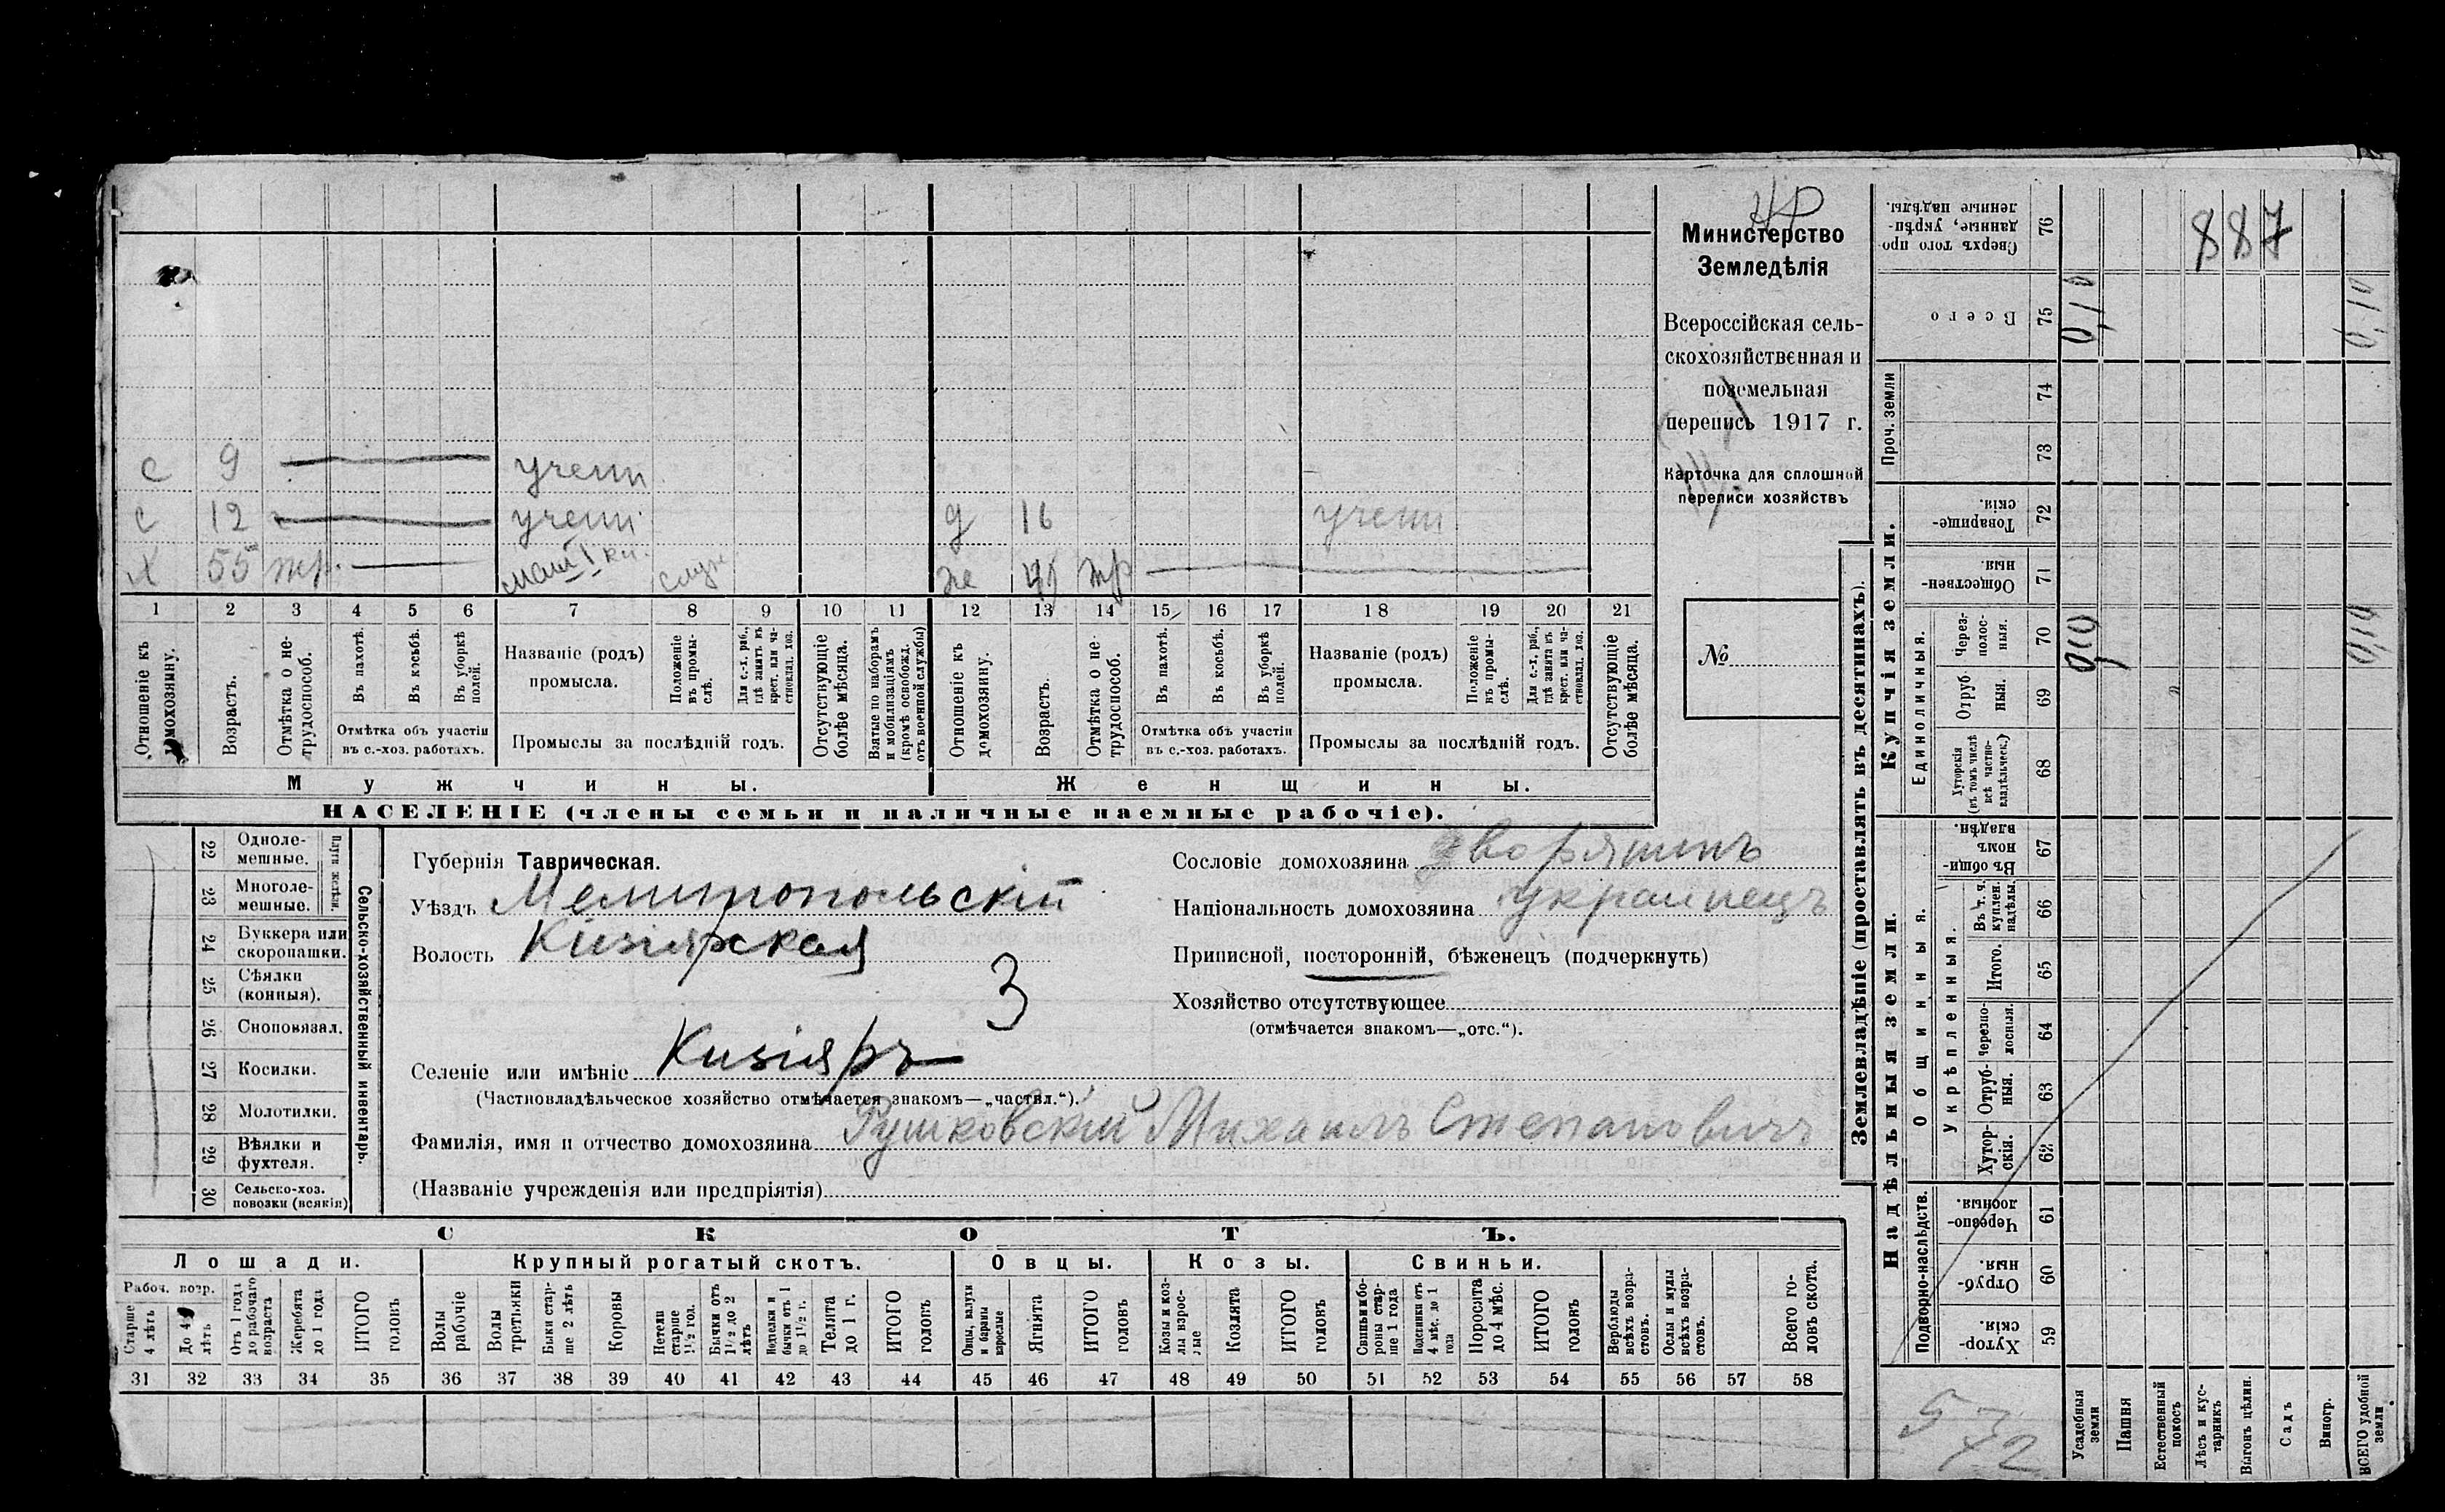 Министерство
Земледѣлія
Всероссійская сель-
скохозяйственная и
поземельная
перепись 1917 г.
Карточка для сплошной
переписи хозяйствъ
№
с 9 учени
с 12 учени д 16 учени
х 55 тр. служ же тр
1 2 3 4 5 6 7 8 9 10 11 12 13 14 15 16 17 18 19 20 21
Отношеніе къ домохозяину.
Возрастъ.
Отмѣтка о не-трудоспособ.
Въ пахотѣ.
Въ косьбѣ.
Въ уборкѣ полей.
Отмѣтка объ участіи
въ с.-хоз. работахъ.
Названіе (родъ)
промысла.
Положеніе въ промы-слѣ.
Для с.-х. раб., гдѣ занятъ въ крест. или ча-стновлад. хоз.
Промыслы за послѣдній годъ.
Отсутствующіе болѣе мѣсяца.
Взятые по наборамъ и мобилизаціямъ (кромѣ освобожд. отъ военной службы)
Отношеніе къ домохозяину.
Возрастъ.
Отмѣтка о не-трудоспособ.
Въ пахотѣ.
Въ косьбѣ.
Въ уборкѣ полей.
Отмѣтка объ участіи
въ с.-хоз. работахъ.
Названіе (родъ)
промысла.
Положеніе въ промы-слѣ.
Для с.-х. раб., гдѣ занята въ крест. или ча-стновлад. хоз.
Промыслы за послѣдній годъ.
Отсутствующіе болѣе мѣсяца.
Мужчины.
Женщины.
НАСЕЛЕНІЕ (члены семьи и наличные наемные рабочіе).
22 Одноле-мешные.
23 Многоле-мешные.
Плуги желѣзн.
24 Буккера или скоропашки.
25 Сѣялки (конныя).
26 Сноповязал.
27 Косилки.
28 Молотилки.
29 Вѣялки и фухтеля.
30 Сельско-хоз. повозки (всякія)
Сельско-хозяйственный инвентарь.
Губернія Таврическая.
Уѣздъ Мелитопольскій
Волость Кизіярская
3
Селеніе или имѣніе Кизіяръ
(Частновладѣльческое хозяйство отмѣчается знакомъ—„частвл.“).
Фамилія, имя и отчество домохозяина Рушковскій Михаилъ Степановичъ
(Названіе учрежденія или предпріятія)
Сословіе домохозяина дворянинъ
Національность домохозяина украинецъ
Приписной, посторонній, бѣженецъ (подчеркнуть)
Хозяйство отсутствующее
(отмѣчается знакомъ—„отс.“).
СКОТЪ.
Лошади.
Крупный рогатый скотъ.
Овцы.
Козы.
Свиньи.
Рабоч. возр.
Старше 4 лѣтъ
До 4 лѣтъ
Отъ 1 года до рабочаго возраста
Жеребята до 1 года
ИТОГО головъ
Волы рабочіе
Волы третьяки
Быки стар-ше 2 лѣтъ
Коровы
Нетели старше 1½ год.
Бычки отъ 1½ до 2 лѣтъ
бычки отъ 1 до 1½ г.
Телята до 1 г.
ИТОГО головъ
Овцы, валухи и бараны взрослые
Ягнята
ИТОГО головъ
Козы и коз-лы взрос-лые
Козлята
ИТОГО головъ
Свиньи и бо-ровы стар-ше 1 года
Подсвинки отъ 4 мѣс. до 1 года
Поросята до 4 мѣс.
ИТОГО головъ
Верблюды всѣхъ возра-стовъ.
Ослы и мулы всѣхъ возра-стовъ.
Всего го-ловъ скота.
31 32 33 34 35 36 37 38 39 40 41 42 43 44 45 46 47 48 49 50 51 52 53 54 55 56 57 58
Землевладѣніе (проставлять въ десятинахъ).
Сверхъ того про-данные, укрѣп-ленные надѣлы. 76
887
Всего 75 0,10 0,10
Проч. земли
74
73
Купчія земли.
Товарище-скія. 72
Обществен-ныя. 71
Единоличныя.
Через-полос-ныя. 70 0,10 0,10
Отруб-ныя. 69
Хуторскія (въ томъ числѣ всѣ частно-владѣльческ.) 68
Надѣльныя земли.
Общинныя.
Въ общи-номъ владѣн. 67
Укрѣпленныя.
Въ т. ч. куплен. надѣлы. 66
Итого. 65
Черезпо-лосныя. 64
Отруб-ныя. 63
Хутор-скія. 62
Подворно-наслѣдств.
Черезпо-лосныя 61
Отруб-ныя. 60
Хутор-скія. 59
Усадебныя земли
Пашня
Естественный покосъ
Лѣсъ и кус-тарникъ
Выгонъ цѣлин.
Садъ
Виногр.
ВСЕГО удобной земли